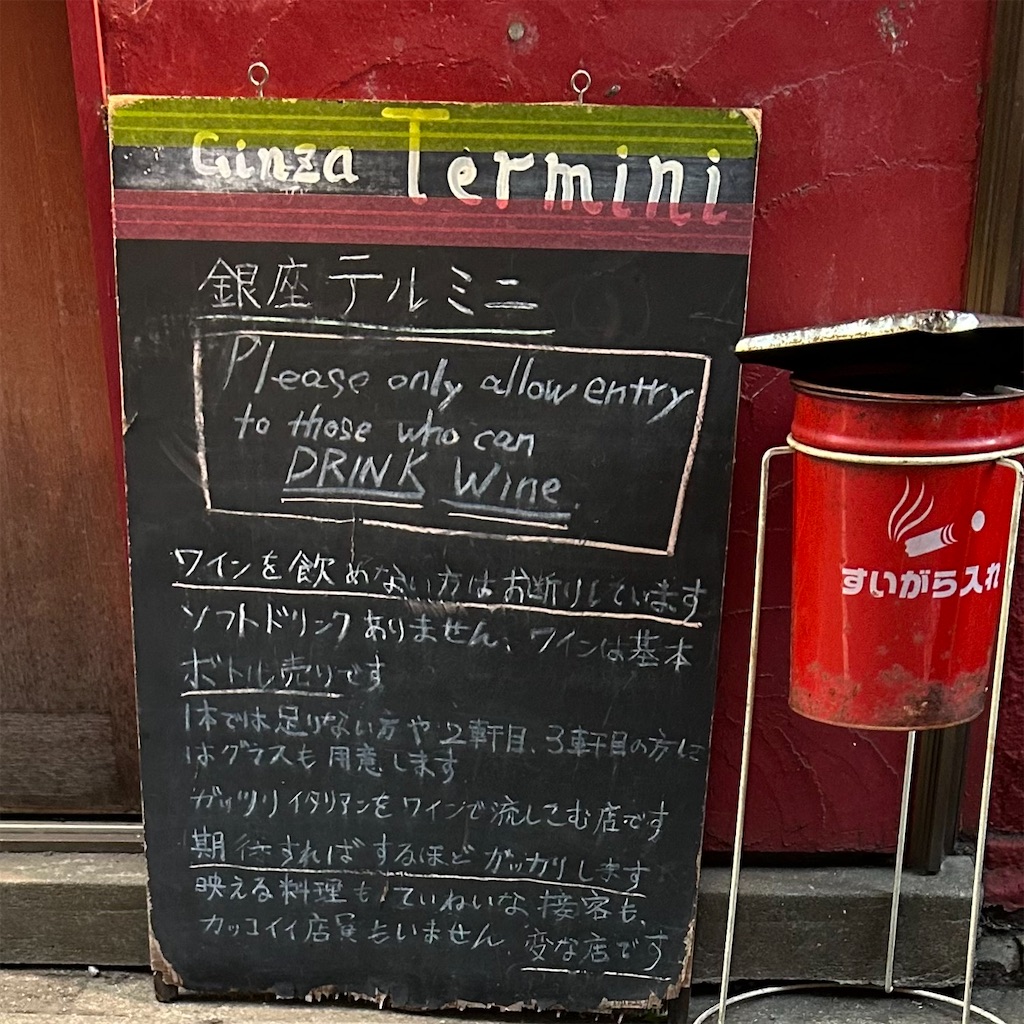 Ginza Termini
銀座テルミニ
Please only allow entry
to those who can
DRINK Wine.
ワインを飲めない方はお断りしています
ソフトドリンクありません、ワインは基本
ボトル売りです
1本では足りない方や2軒目、3軒目の方に
はグラスも用意します
ガッツリイタリアンをワインで流しこむ店です
期待すればするほどガッカリします
映える料理も、ていねいな接客も、
カッコイイ店員もいません 変な店です
すいがら入れ